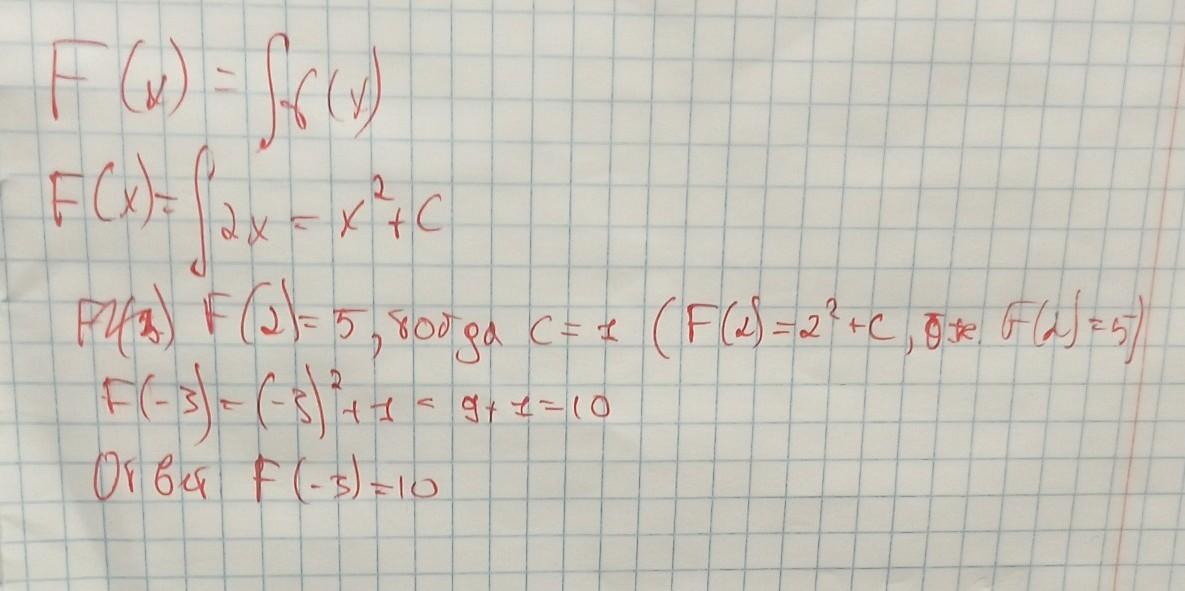 F(x) = ∫f(x)
F(x) = ∫2x = x² + C
F(2) = 5, тогда C = 1 (F(2) = 2² + C, F(2) = 5)
F(-3) = (-3)² + 1 = 9 + 1 = 10
Ответ F(-3) = 10